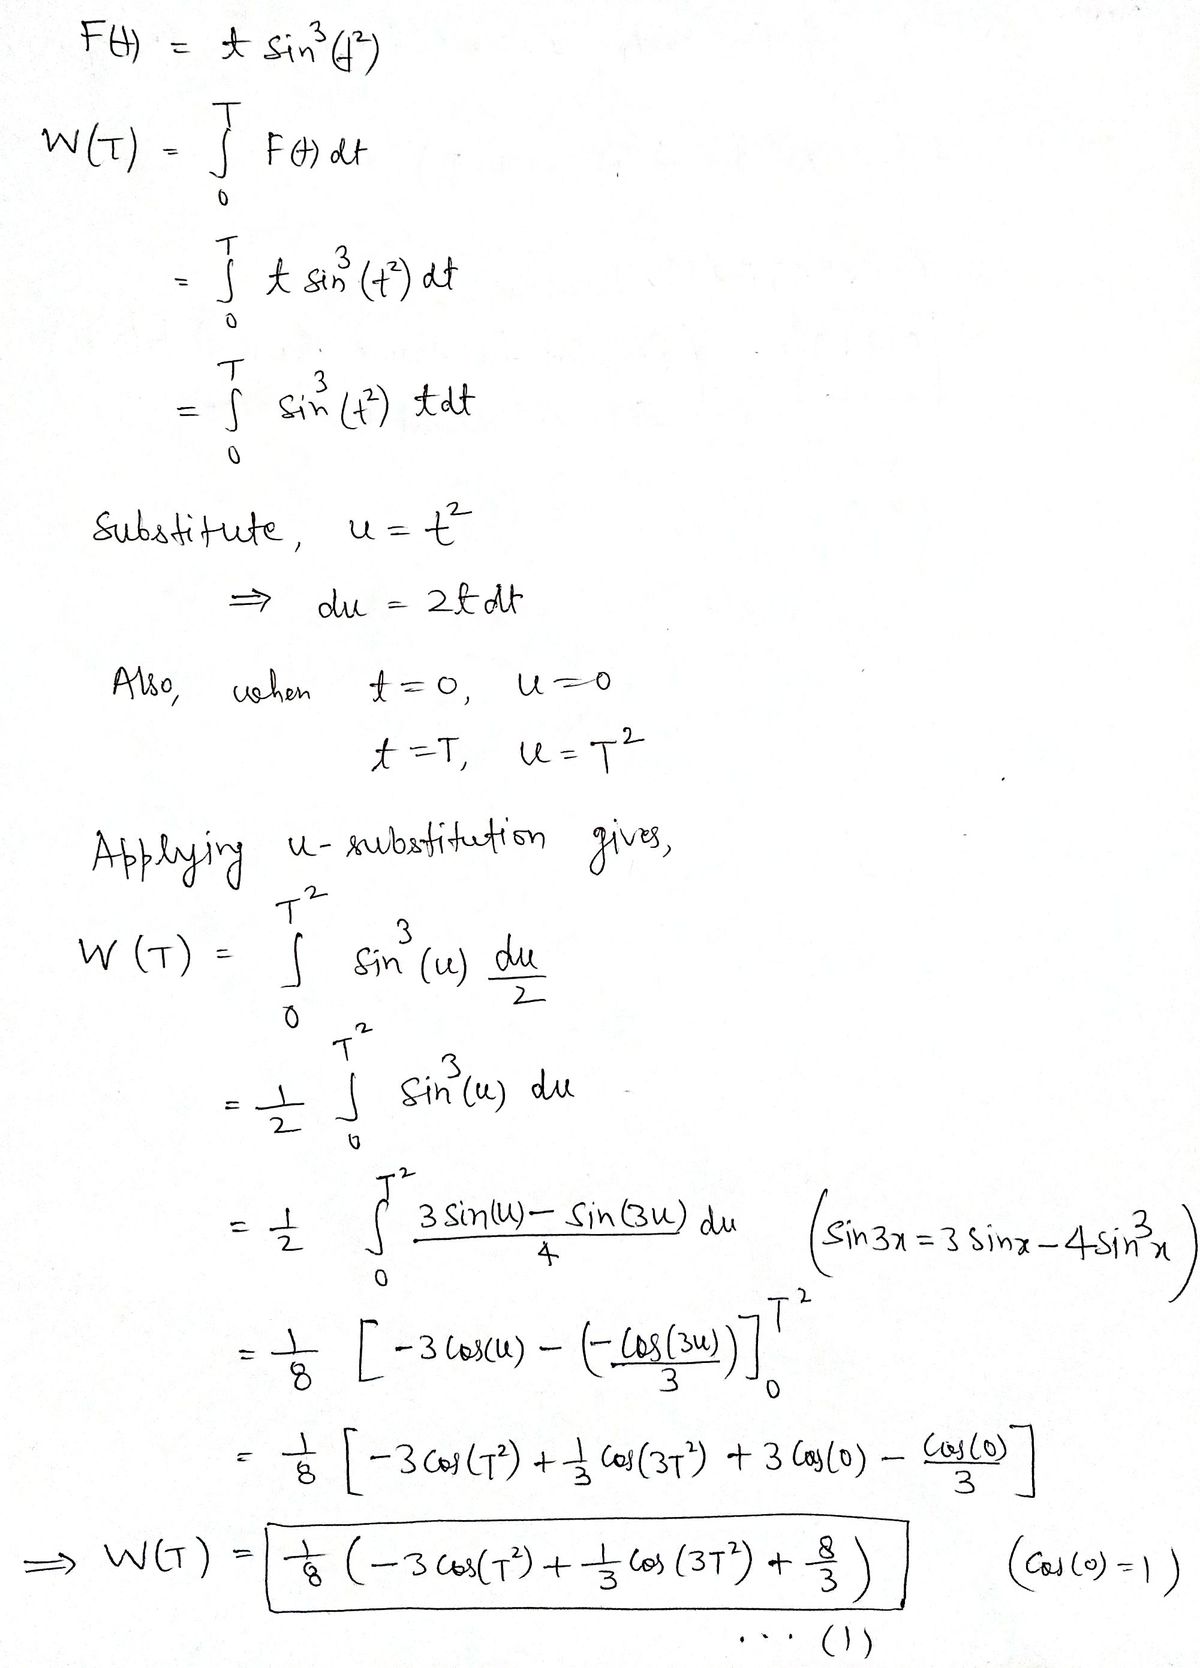 F(t) = t sin³(t²)
W(T) = ∫₀ᵀ F(t) dt
= ∫₀ᵀ t sin³(t²) dt
= ∫₀ᵀ sin³(t²) t dt
Substitute, u = t²
⇒ du = 2t dt
Also, when t = 0, u = 0
t = T, u = T²
Applying u-substitution gives,
W(T) = ∫₀^{T²} sin³(u) du/2
= 1/2 ∫₀^{T²} sin³(u) du
= 1/2 ∫₀^{T²} (3 sin(u) − sin(3u))/4 du (sin3x = 3 sinx − 4 sin³x)
= 1/8 [−3 cos(u) − (−cos(3u)/3)]₀^{T²}
= 1/8 [−3 cos(T²) + 1/3 cos(3T²) + 3 cos(0) − cos(0)/3]
⇒ W(T) = 1/8 (−3 cos(T²) + 1/3 cos(3T²) + 8/3) (cos(0) = 1)
... (1)